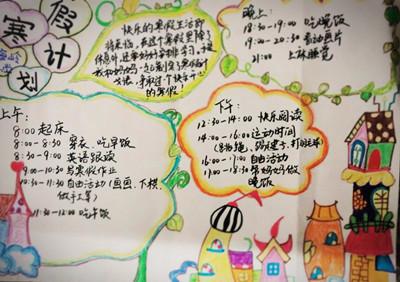 寒假计划
快乐的寒假生活即
将来临，在这个寒假里除了
休息外，还要好好学习，
我和妈妈一起制定了寒假计
划，争取过个快乐开心
的寒假！
晚上：
18:30-19:00 吃晚饭
19:00-20:30 看动画片
21:00 上床睡觉
上午：
8:00 起床
8:00-8:30 穿衣、吃早饭
8:30-9:00 英语跟读
9:00-10:30 写寒假作业
10:30-11:30 自由活动(画画、下棋、
做手工等)
11:30-12:00 吃午饭
下午：
12:30-14:00 快乐阅读
14:00-16:00 运动时间
16:00-17:00 自由活动
17:00-18:30 帮妈妈做
晚饭